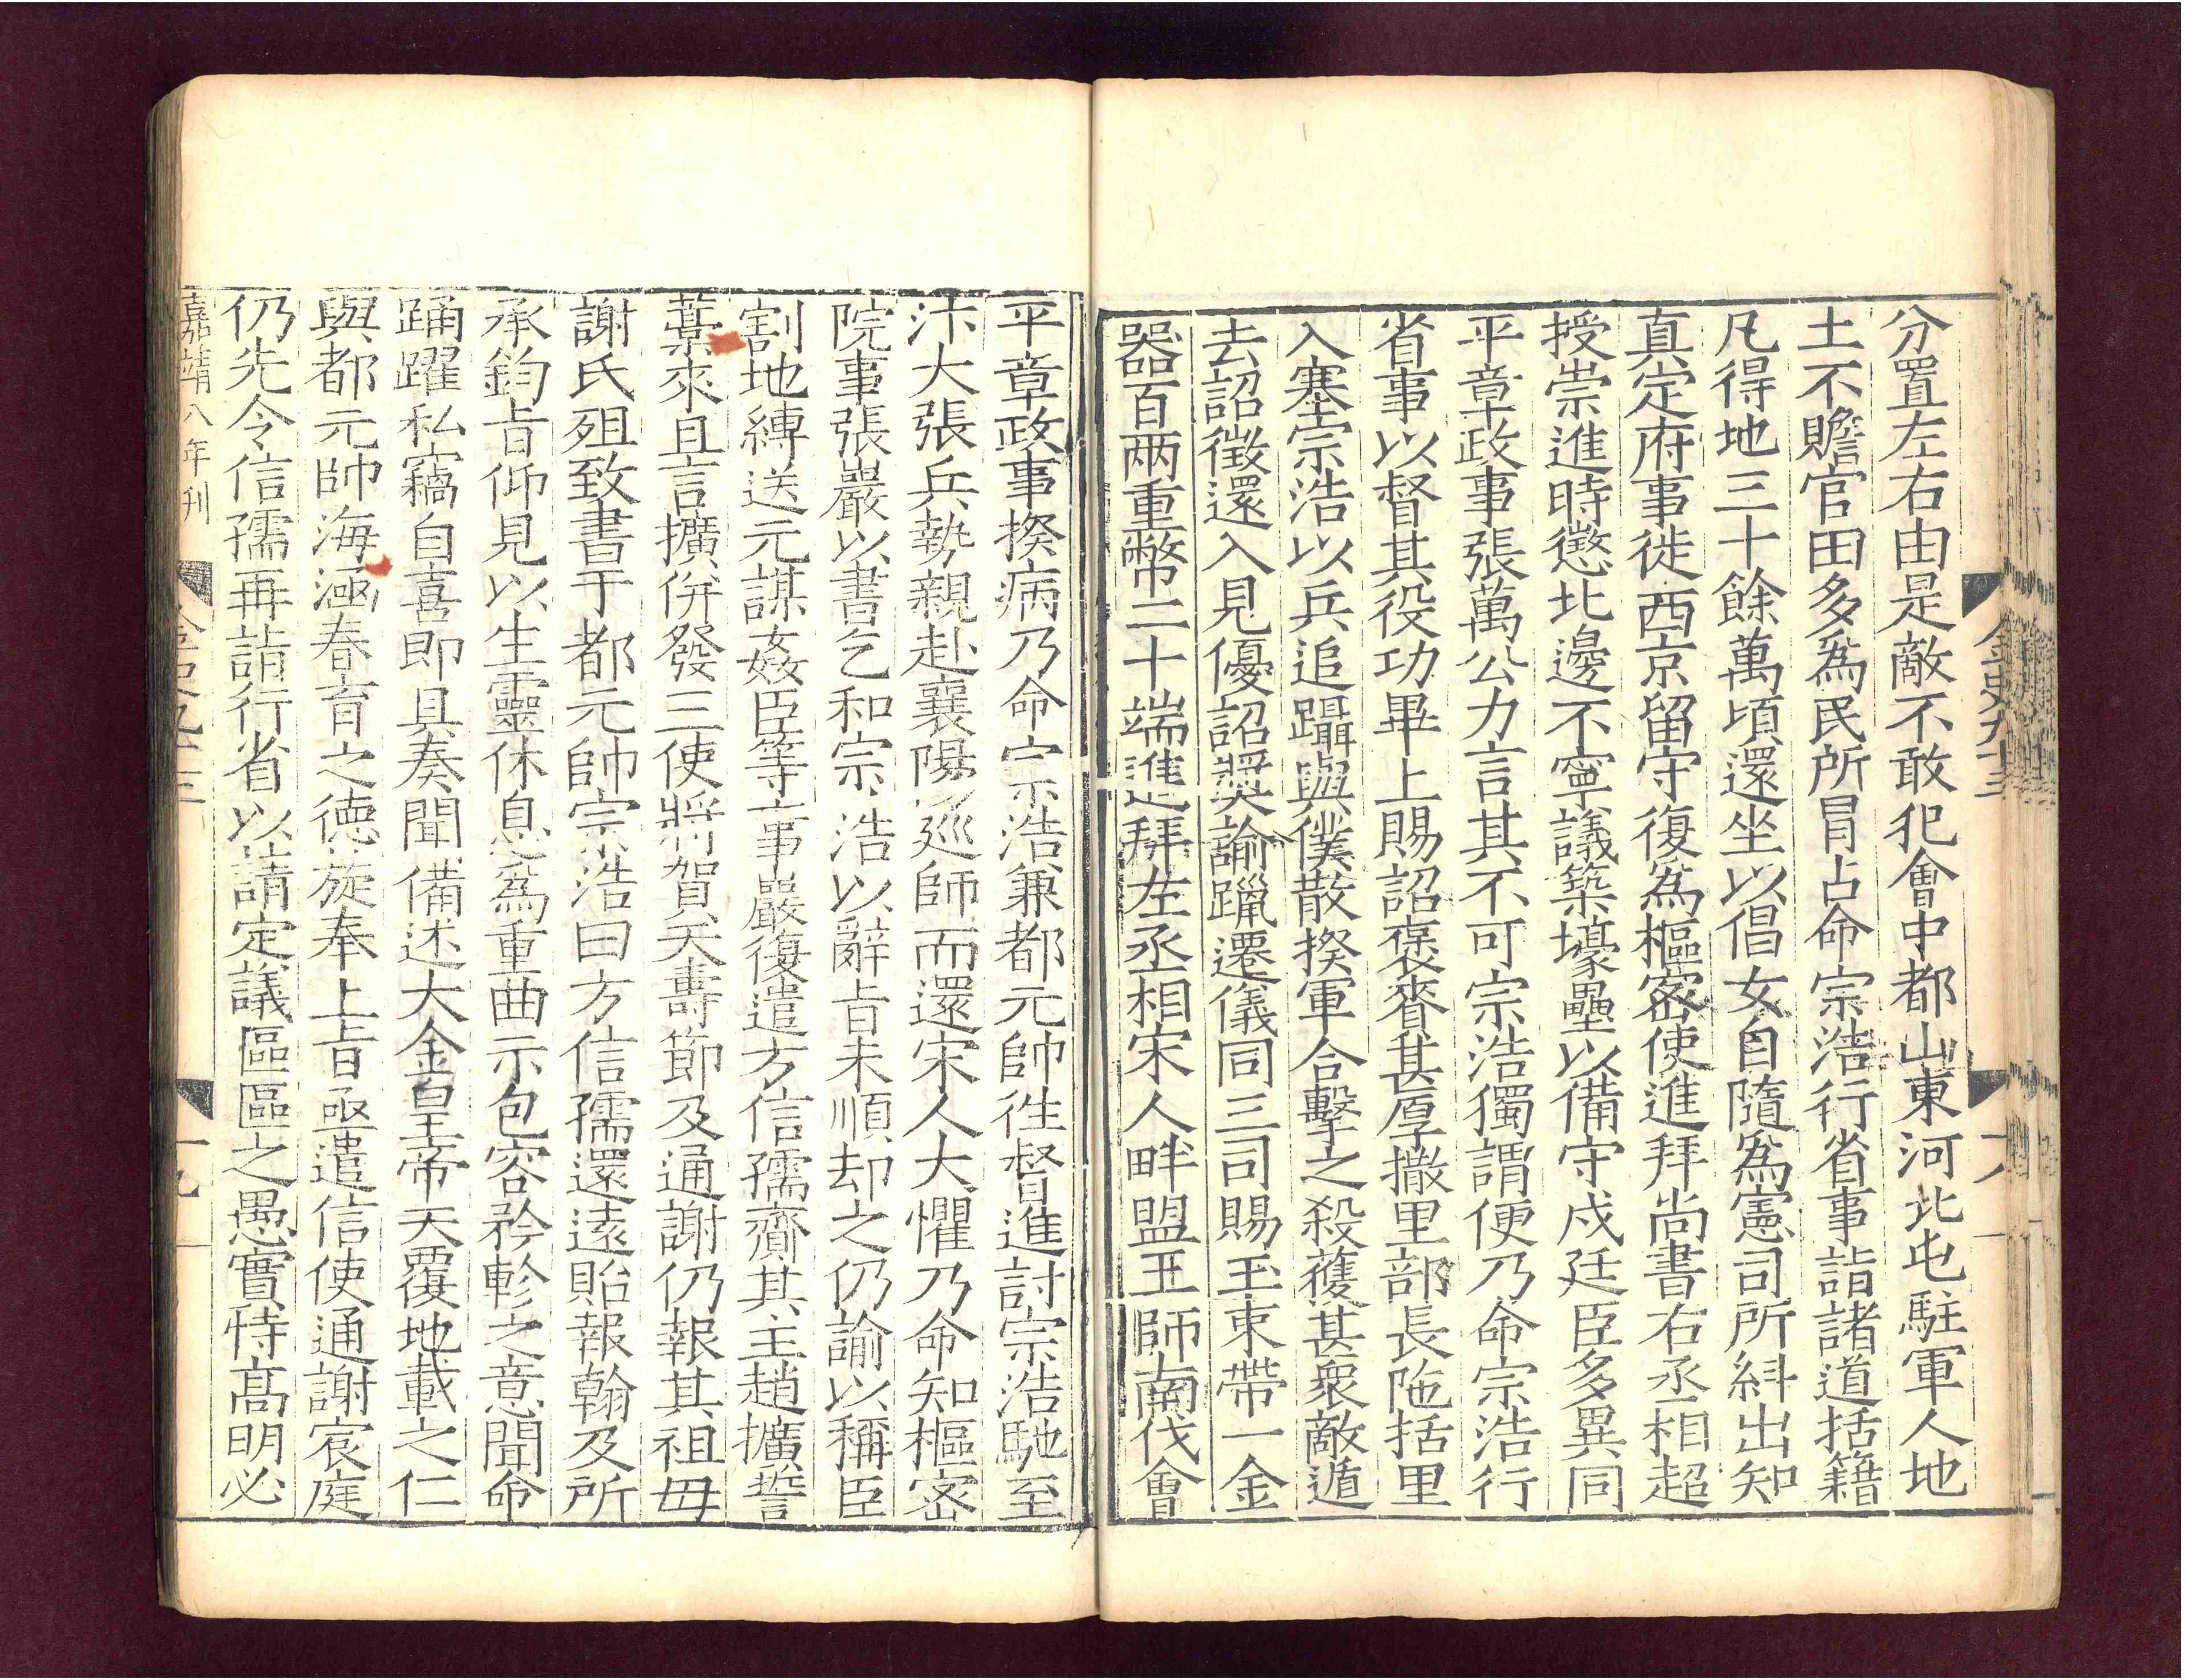 分置左右由是敵不敢犯會中都山東河北屯駐軍人地
土不贍官田多爲民所冒占命宗浩行省事詣諸道括籍
凡得地三十餘萬頃還坐以倡女自隨爲憲司所糾出知
真定府事徙西京留守復爲樞密使進拜尚書右丞相超
授崇進時懲北邊不寧議築壕壘以備守戍廷臣多異同
平章政事張萬公力言其不可宗浩獨謂便乃命宗浩行
省事以督其役功畢上賜詔褒賚甚厚撒里部長陁括里
入塞宗浩以兵追躡與僕散揆軍合擊之殺獲甚衆敵遁
去詔徵還入見優詔奬諭躐遷儀同三司賜玉束帶一金
器百兩重幣二十端進拜左丞相宋人畔盟王師南伐會
金史九十三
十八
平章政事揆病乃命宗浩兼都元帥徃督進討宗浩馳至
汴大張兵勢親赴襄陽巡師而還宋人大懼乃命知樞密
院事張巖以書乞和宗浩以辭旨未順却之仍諭以稱臣
割地縛送元謀姦臣等事巖復遣方信孺齎其主趙擴誓
藁來且言擴併發三使將賀天壽節及通謝仍報其祖母
謝氏殂致書于都元帥宗浩曰方信孺還遠貽報翰及所
承鈞旨仰見以生靈休息爲重曲示包容矜軫之意聞命
踊躍私竊自喜即具奏聞備述大金皇帝天覆地載之仁
與都元帥海涵春育之德旋奉上旨亟遣信使通謝宸庭
仍先令信孺再詣行省以請定議區區之愚實恃高明必
嘉靖八年刊
金史九十三
十九